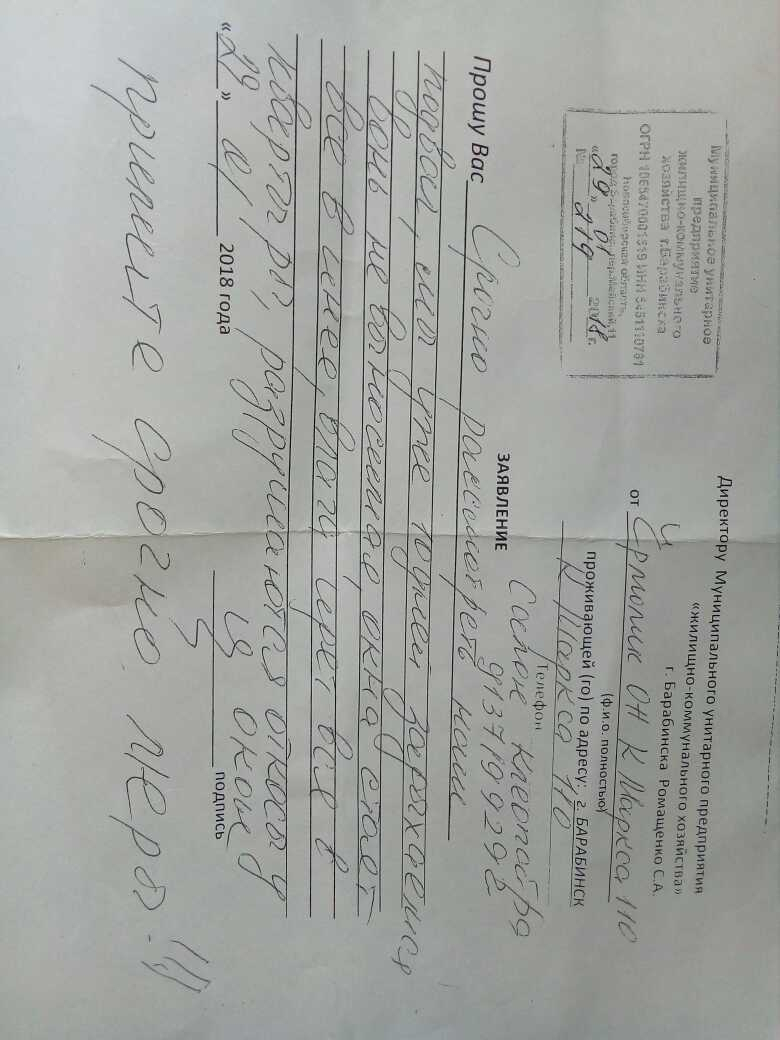 Директору Муниципального унитарного предприятия
«жилищно-коммунального хозяйства»
г. Барабинска Ромащенко С.А.
от Ермолик ОН К Маркса 110
(ф.и.о. полностью)
проживающей (го) по адресу: г. БАРАБИНСК
К Маркса 110
Телефон
9137199292
Муниципальное унитарное
предприятие
жилищно-коммунального
хозяйства г.Барабинска
ОГРН ИНН
Новосибирская область,
«29» 01 2018 г.
№ 219
ЗАЯВЛЕНИЕ
Прошу Вас Срочно рассмотреть наши
подвал, мы уже годами задыхаемся
вонь не выносимая, окна стоят
все в инее, влага через все в
квартиры, разрушаются откосы у
окон
«29» 01 2018 года
подпись
примите срочно меры!!!